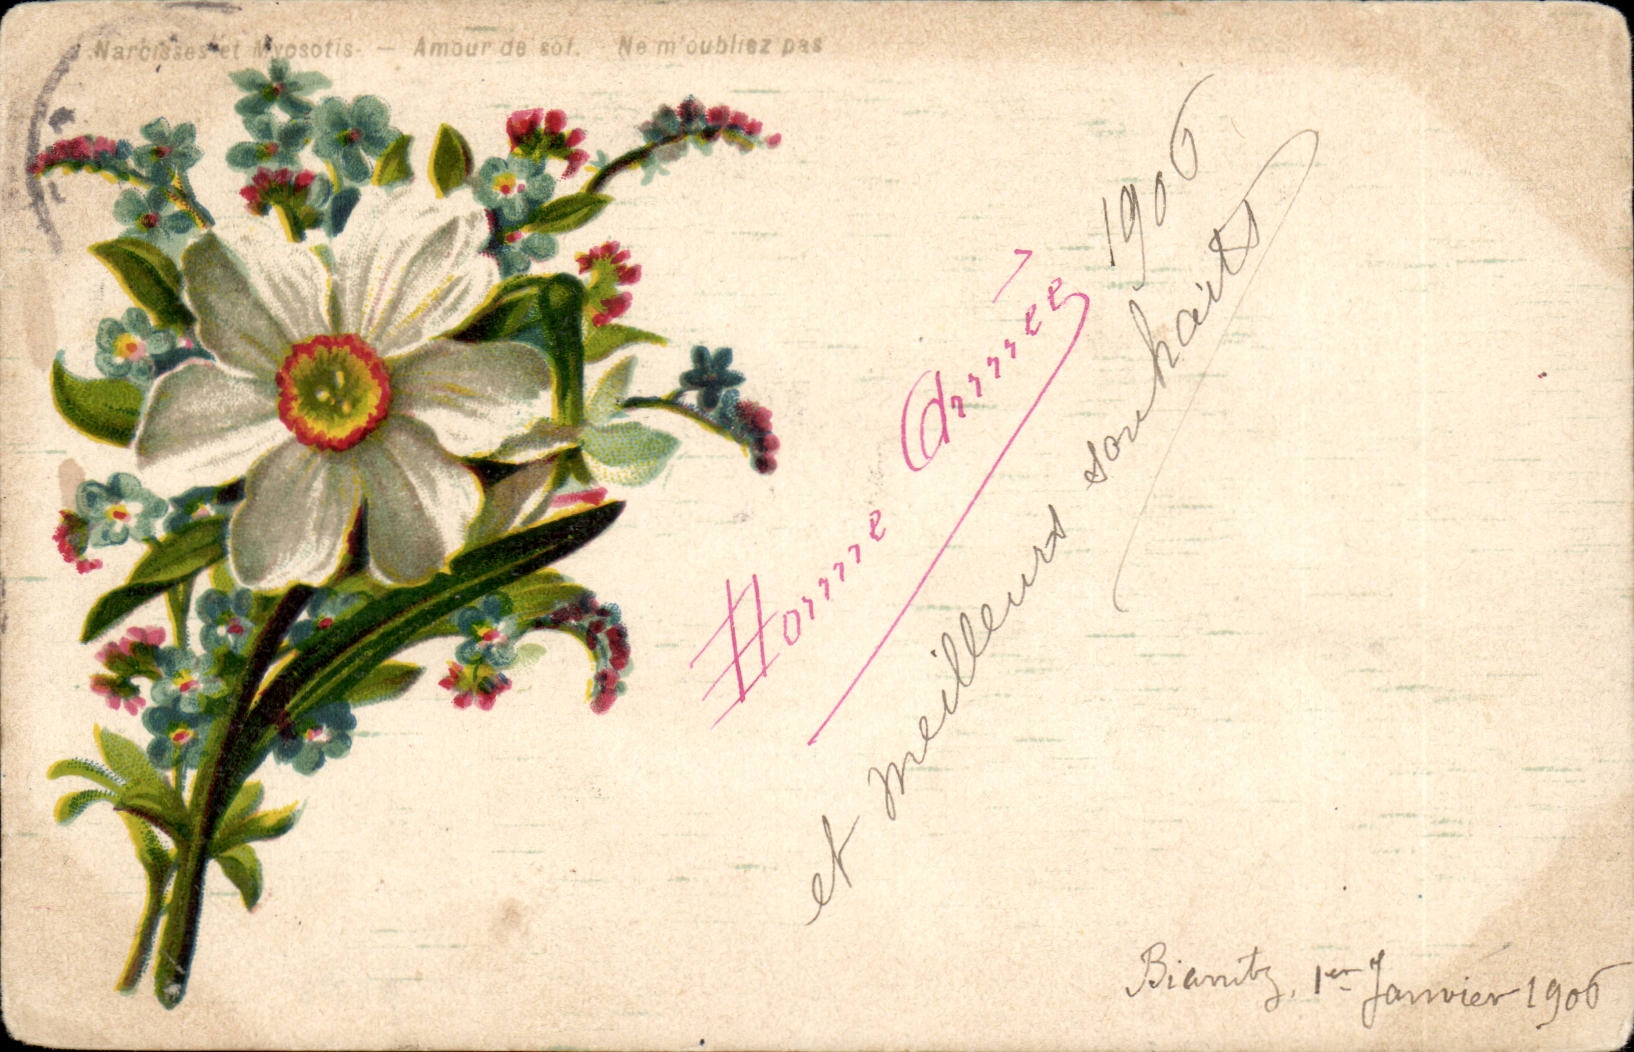 Narcisses et Myosotis - — Amour de soi. Ne m'oubliez pas
Bonne Année 1906
et meilleurs souhaits
Biarritz, 1er Janvier 1906